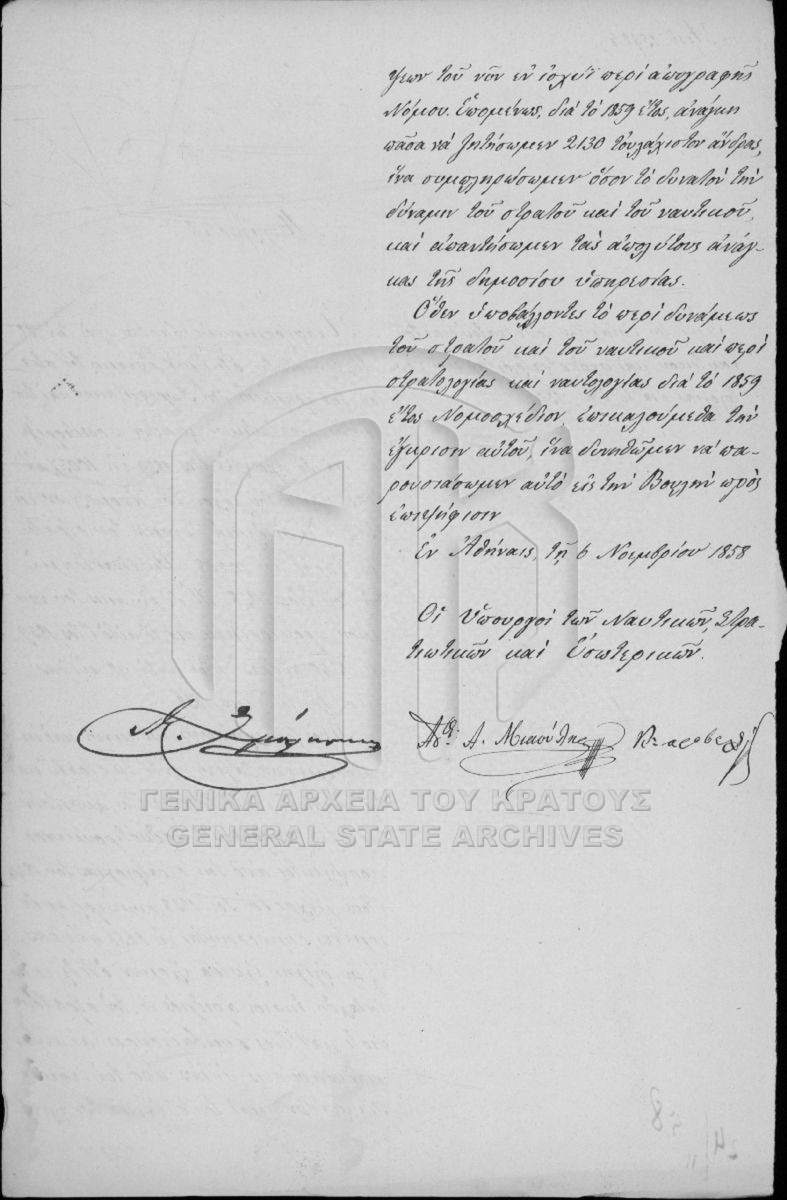 ψεων τοῦ νῦν ἐν ἰσχύϊ περὶ ἀπογραφῆς
Νόμου. Ἑπομένως, διὰ τὸ 1859 ἔτος, ἀνάγκη
πᾶσα νὰ ζητήσωμεν 2130 τοὐλάχιστον ἄνδρας,
ἵνα συμπληρώσωμεν ὅσον τὸ δυνατὸν τὴν
δύναμιν τοῦ στρατοῦ καὶ τοῦ ναυτικοῦ,
καὶ ἀπαντήσωμεν τὰς ἀπολύτους ἀνάγ-
κας τῆς δημοσίου ὑπηρεσίας.
Ὅθεν ὑποβάλλοντες τὸ περὶ δυνάμεως
τοῦ στρατοῦ καὶ τοῦ ναυτικοῦ καὶ περὶ
στρατολογίας καὶ ναυτολογίας διὰ τὸ 1859
ἔτος Νομοσχέδιον, ἐπικαλούμεθα τὴν
ἔγκρισιν αὐτοῦ, ἵνα δυνηθῶμεν νὰ πα-
ρουσιάσωμεν αὐτὸ εἰς τὴν Βουλὴν πρὸς
ἐπιψήφισιν
Ἐν Ἀθήναις, τῇ 6 Νοεμβρίου 1858
Οἱ Ὑπουργοὶ τῶν Ναυτικῶν, Στρα-
τιωτικῶν καὶ Ἐσωτερικῶν.
Ἀθ. Α. Μιαούλης
ΓΕΝΙΚΑ ΑΡΧΕΙΑ ΤΟΥ ΚΡΑΤΟΥΣ
GENERAL STATE ARCHIVES